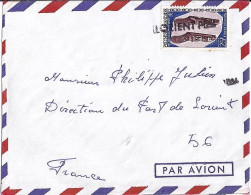 LORIENT P
Monsieur Philippe Julien
Direction du Port de Lorient
56
France
PAR AVION